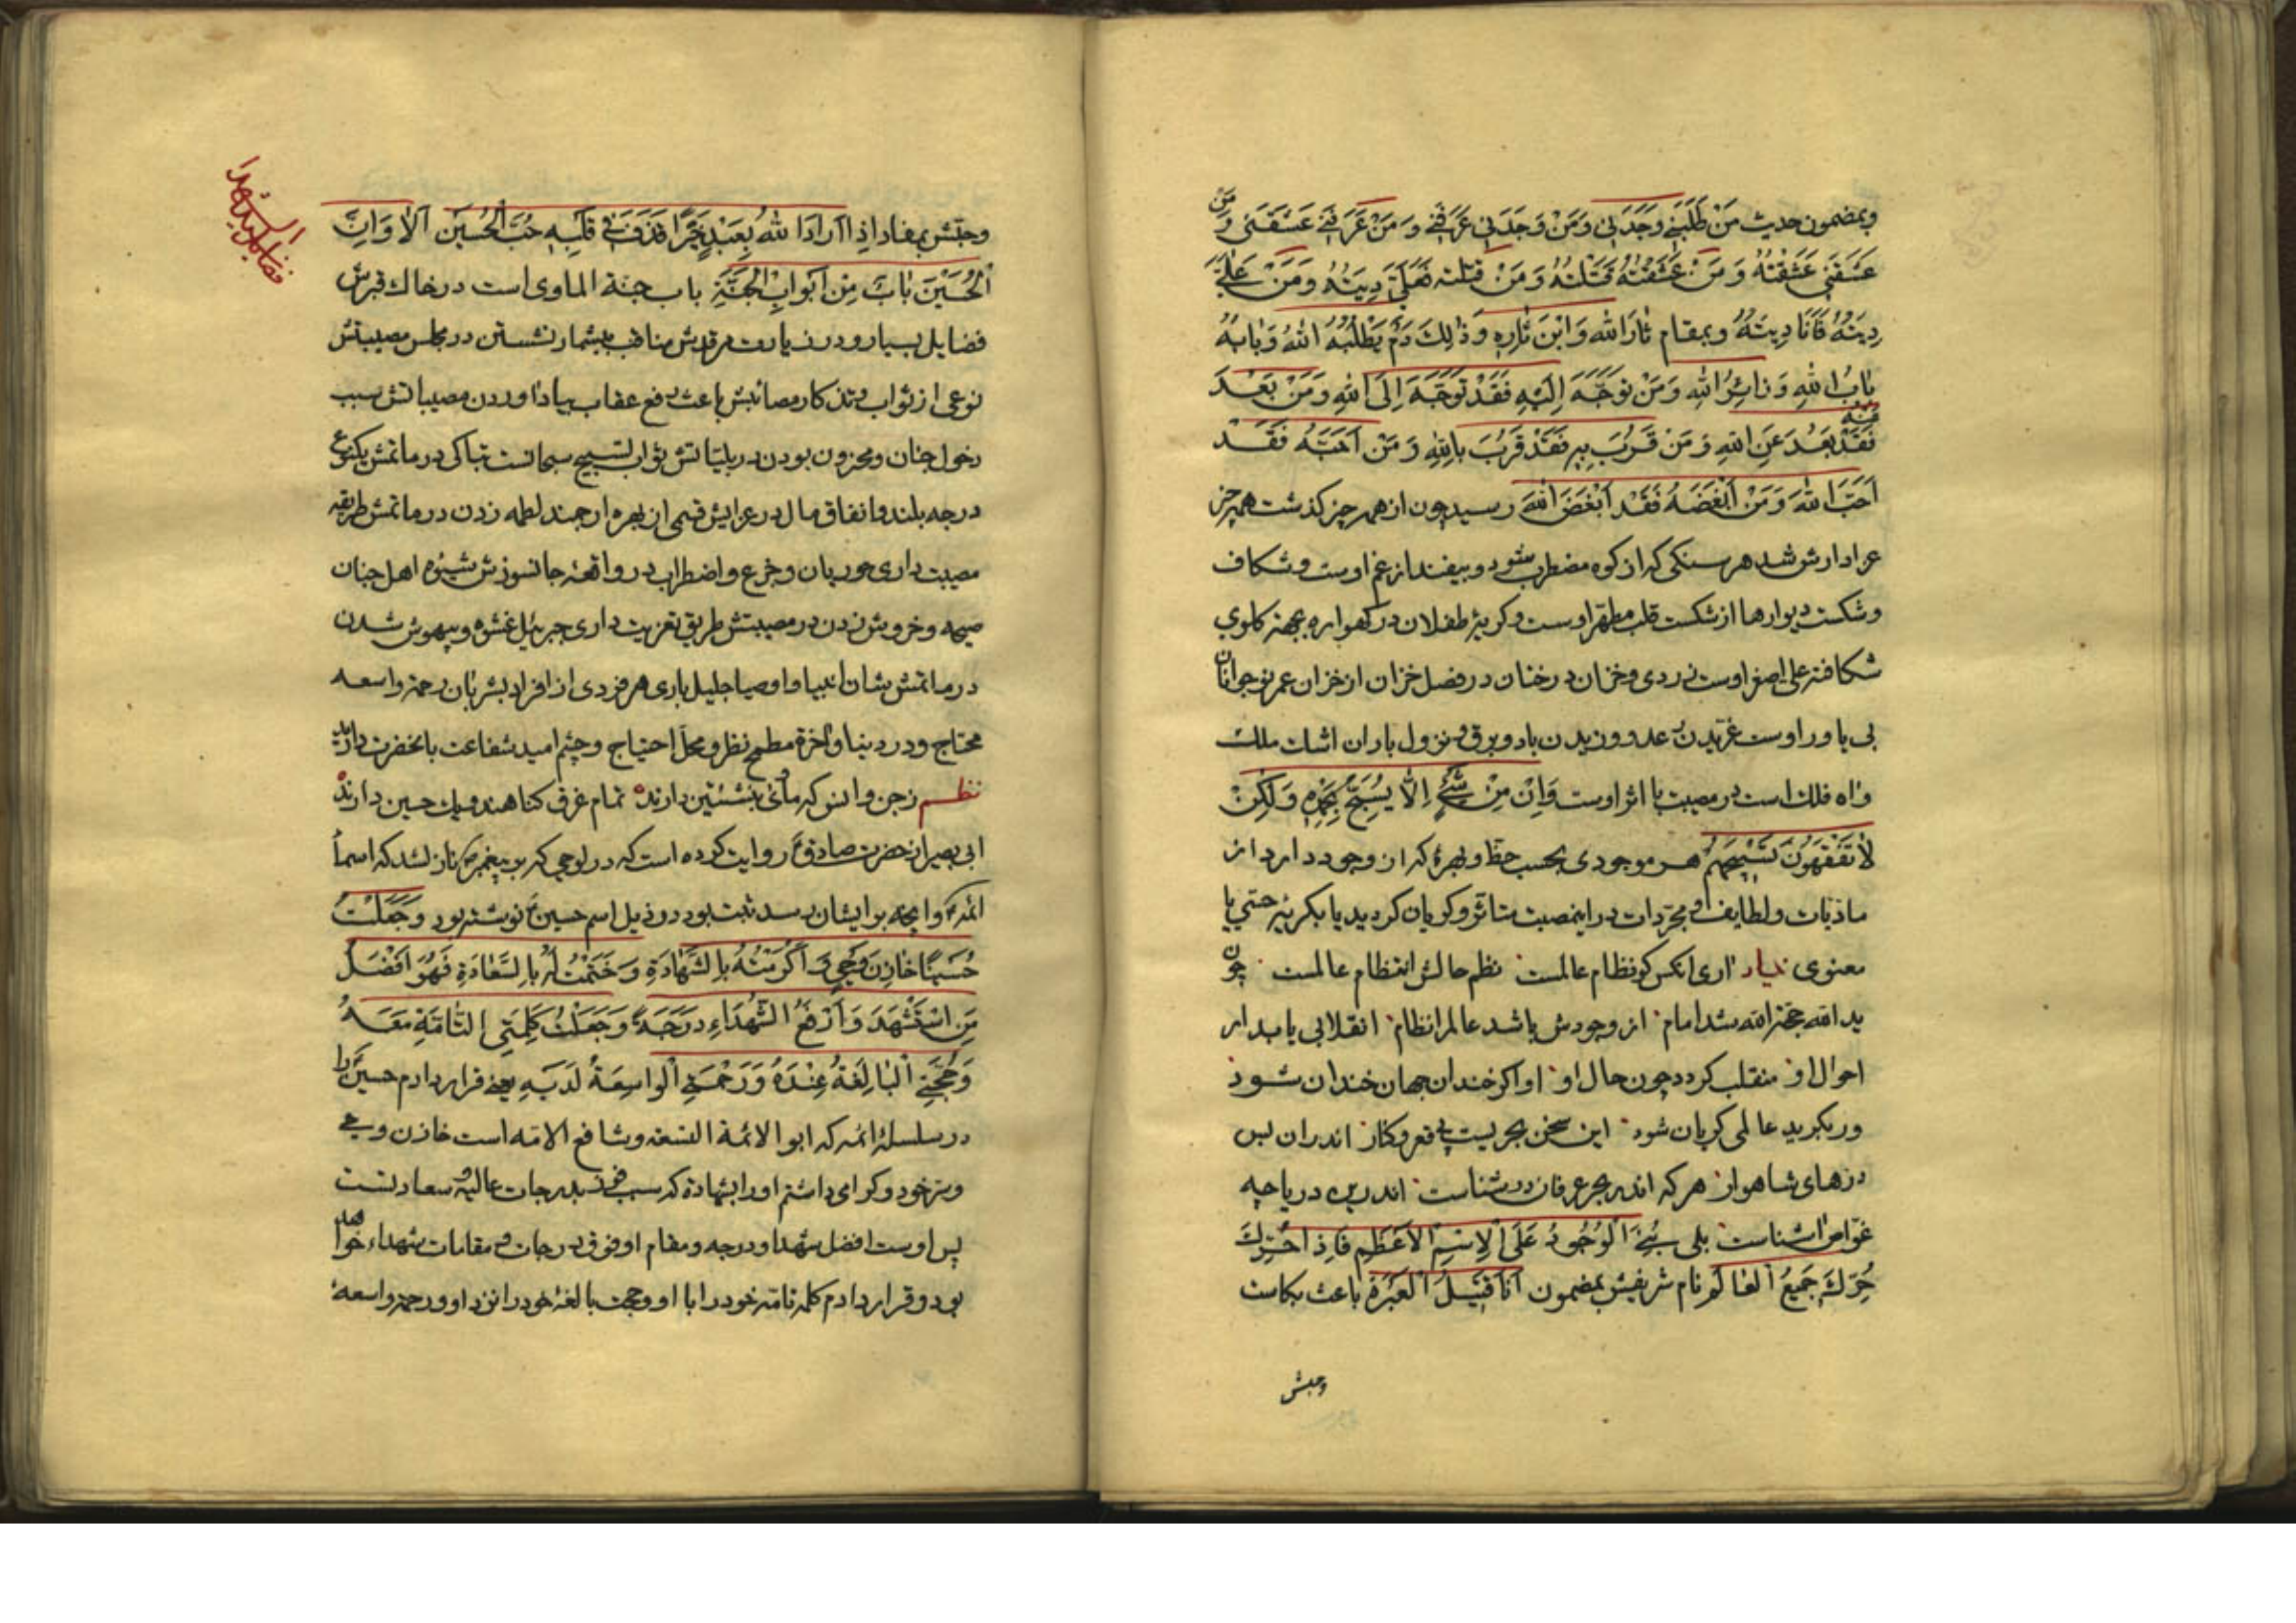 وبمضمون حدیث مَنْ طَلَبَنِي وَجَدَنِي وَمَنْ وَجَدَنِي عَرَفَنِي وَمَنْ عَرَفَنِي عَشَقَنِي وَمَنْ
عَشَقَنِي عَشَقْتُهُ وَمَنْ عَشَقْتُهُ قَتَلْتُهُ وَمَنْ قتلته فَعَلَيَّ دِيَتُهُ وَمَنْ عَلَيَّ
دِيَتُهُ فَاَنَا دِيَتُهُ وبمقام ثَارَ اللهِ وَابْنَ ثَارِهِ وَذٰلِكَ دَمٌ يَطْلُبُهُ اللهُ وَبَابُهُ
بَابُ اللهِ وَزَائِرُ اللهِ وَمَنْ تَوَجَّهَ اِلَيْهِ فَقَدْ تَوَجَّهَ اِلَى اللهِ وَمَنْ بَعُدَ
مِنْهُ فَقَدْ بَعُدَ عَنِ اللهِ وَمَنْ قَرُبَ بِهِ فَقَدْ قَرُبَ بِاللهِ وَمَنْ اَحَبَّهُ فَقَدْ
اَحَبَّ اللهَ وَمَنْ اَبْغَضَهُ فَقَدْ اَبْغَضَ اللهَ رسید چون از همه چیز کذشت همه چیز
عزادارش شد هر سنکی که از کوه مضطرب شود و بیفتد از غم اوست و شکاف
و شکست دیوارها از شکست قلب مطهر اوست و کریهٔ طفلان در کهواره بجهة کلوی
شکافتهٔ علی اصغر اوست زردی و خزان درختان در فصل خزان از خزان عمر نوجوانان
بی یاور اوست غریدن رعد و وزیدن باد و برق و نزول باران اشک ملک
و اه فلک است در مصیبت با اثر اوست وَاِنْ مِنْ شَيْءٍ اِلّا يُسَبِّحُ بِحَمْدِهِ وَلٰكِنْ
لا تَفْقَهُونَ تَسْبِيحَهُمْ هر موجودی بحسب حظ و بهرهٔ که از وجود دارد از
مادیات ولطایف و مجردات در این مصیبت متاثر و کریان کردید یا بکریهٔ حتی یا
معنوی اری انکس کو نظام عالمست نظم حالش انتظام عالمست چون
ید الله حجة الله شد امام از وجودش باشد عالم را نظام انقلابی یابد ار
احوال او منقلب کردد چون حال او او اکر خندان جهان خندان شود
ور بکرید عالمی کریان شود این سخن بحریست بی قعر و کنار اندران بس
درهای شاهوار هر که اندر بحر عرفان در شناست اندرین دریاچه
غواص اشناست بلی بُنِيَ الْوُجُودُ عَلَى الْاِسْمِ الْاَعْظَمِ فَاِذَا حُرِّكَ
حُرِّكَ جَمِيعُ الْعَالَمِ نام شریفش بمضمون اَنَا قَتِيلُ الْعَبَرَةِ باعث بکاست
وحبّش
فضایل سید الشهدا
وحبّش بمفاد اِذَا اَرَادَ اللهُ بِعَبْدٍ خَيْرًا قَذَفَ فِي قَلْبِهِ حُبَّ الْحُسَيْنِ اَلَا وَاِنَّ
اَلْحُسَيْنَ بَابٌ مِنْ اَبْوَابِ الْجَنَّةِ باب جنة الماوی است در خاک قبرش
فضایل بسیار و در زیارت مرقدش مناقب بیشمار نشستن در مجلس مصیبتش
نوعی از ثواب و تذکار مصائبش باعث رفع عقاب بیاد اوردن مصیباتش سبب
دخول جنان و محزون بودن در بلیاتش ثواب تسبیح سبحانست تباکی در ماتمش یکنوع
درجه بلند و انفاق مال در عزایش قسمی از بهره ارجمند لطمه زدن در ماتمش طریقه
مصیبت داری حوریان و جزع و اضطراب در واقعه جانسوزش شیوه اهل جنان
صیحه و خروش زدن در مصیبتش طریق تعزیت داری جبرئیل غشوه و بیهوش شدن
در ماتمش شان انبیا و اوصیا جلیل باری هر فردی از افراد بشر بان رحمة واسعه
محتاج و در دنیا و اخرة مطمح نظر و محل احتیاج و چشم امید شفاعت بانحضرت دارند
نظم ز جن و انس که مأوی بنشئتین دارند تمام غرق کناهند و یک حسین دارند
ابی بصیر از حضرت صادق ع روایت کرده است که در لوحی که بر پیغمبر ص نازل شد که اسماء
ائمه و انچه بر ایشان رسد ثبت بود در ذیل اسم حسین ع نوشته بود وَجَعَلْتُ
حُسَيْنًا خَازِنَ وَحْيِي وَاَكْرَمْتُهُ بِالشَّهَادَةِ وَخَتَمْتُ لَهُ بِالسَّعَادَةِ فَهُوَ اَفْضَلُ
مَنِ اسْتُشْهِدَ وَاَرْفَعُ الشُّهَدَاءِ دَرَجَةً وَجَعَلْتُ كَلِمَتِيَ التَّامَّةَ مَعَهُ
وَحُجَّتِيَ الْبَالِغَةَ عِنْدَهُ وَرَحْمَتِيَ الْوَاسِعَةَ لَدَيْهِ یعنی قرار دادم حسین را
در سلسلهٔ ائمه که ابو الائمة التسعه و شافع الامة است خازن وحی
و سر خود و کرامی داشتم او را بشهادة که سبب درجات عالیه و سعادتست
پس اوست افضل شهدا و درجه و مقام او فوق درجات و مقامات شهداء خواهد
بود و قرار دادم کلمه تامّه خود را با او و حجت بالغهٔ خود را نزد او و رحمة واسعهٔ